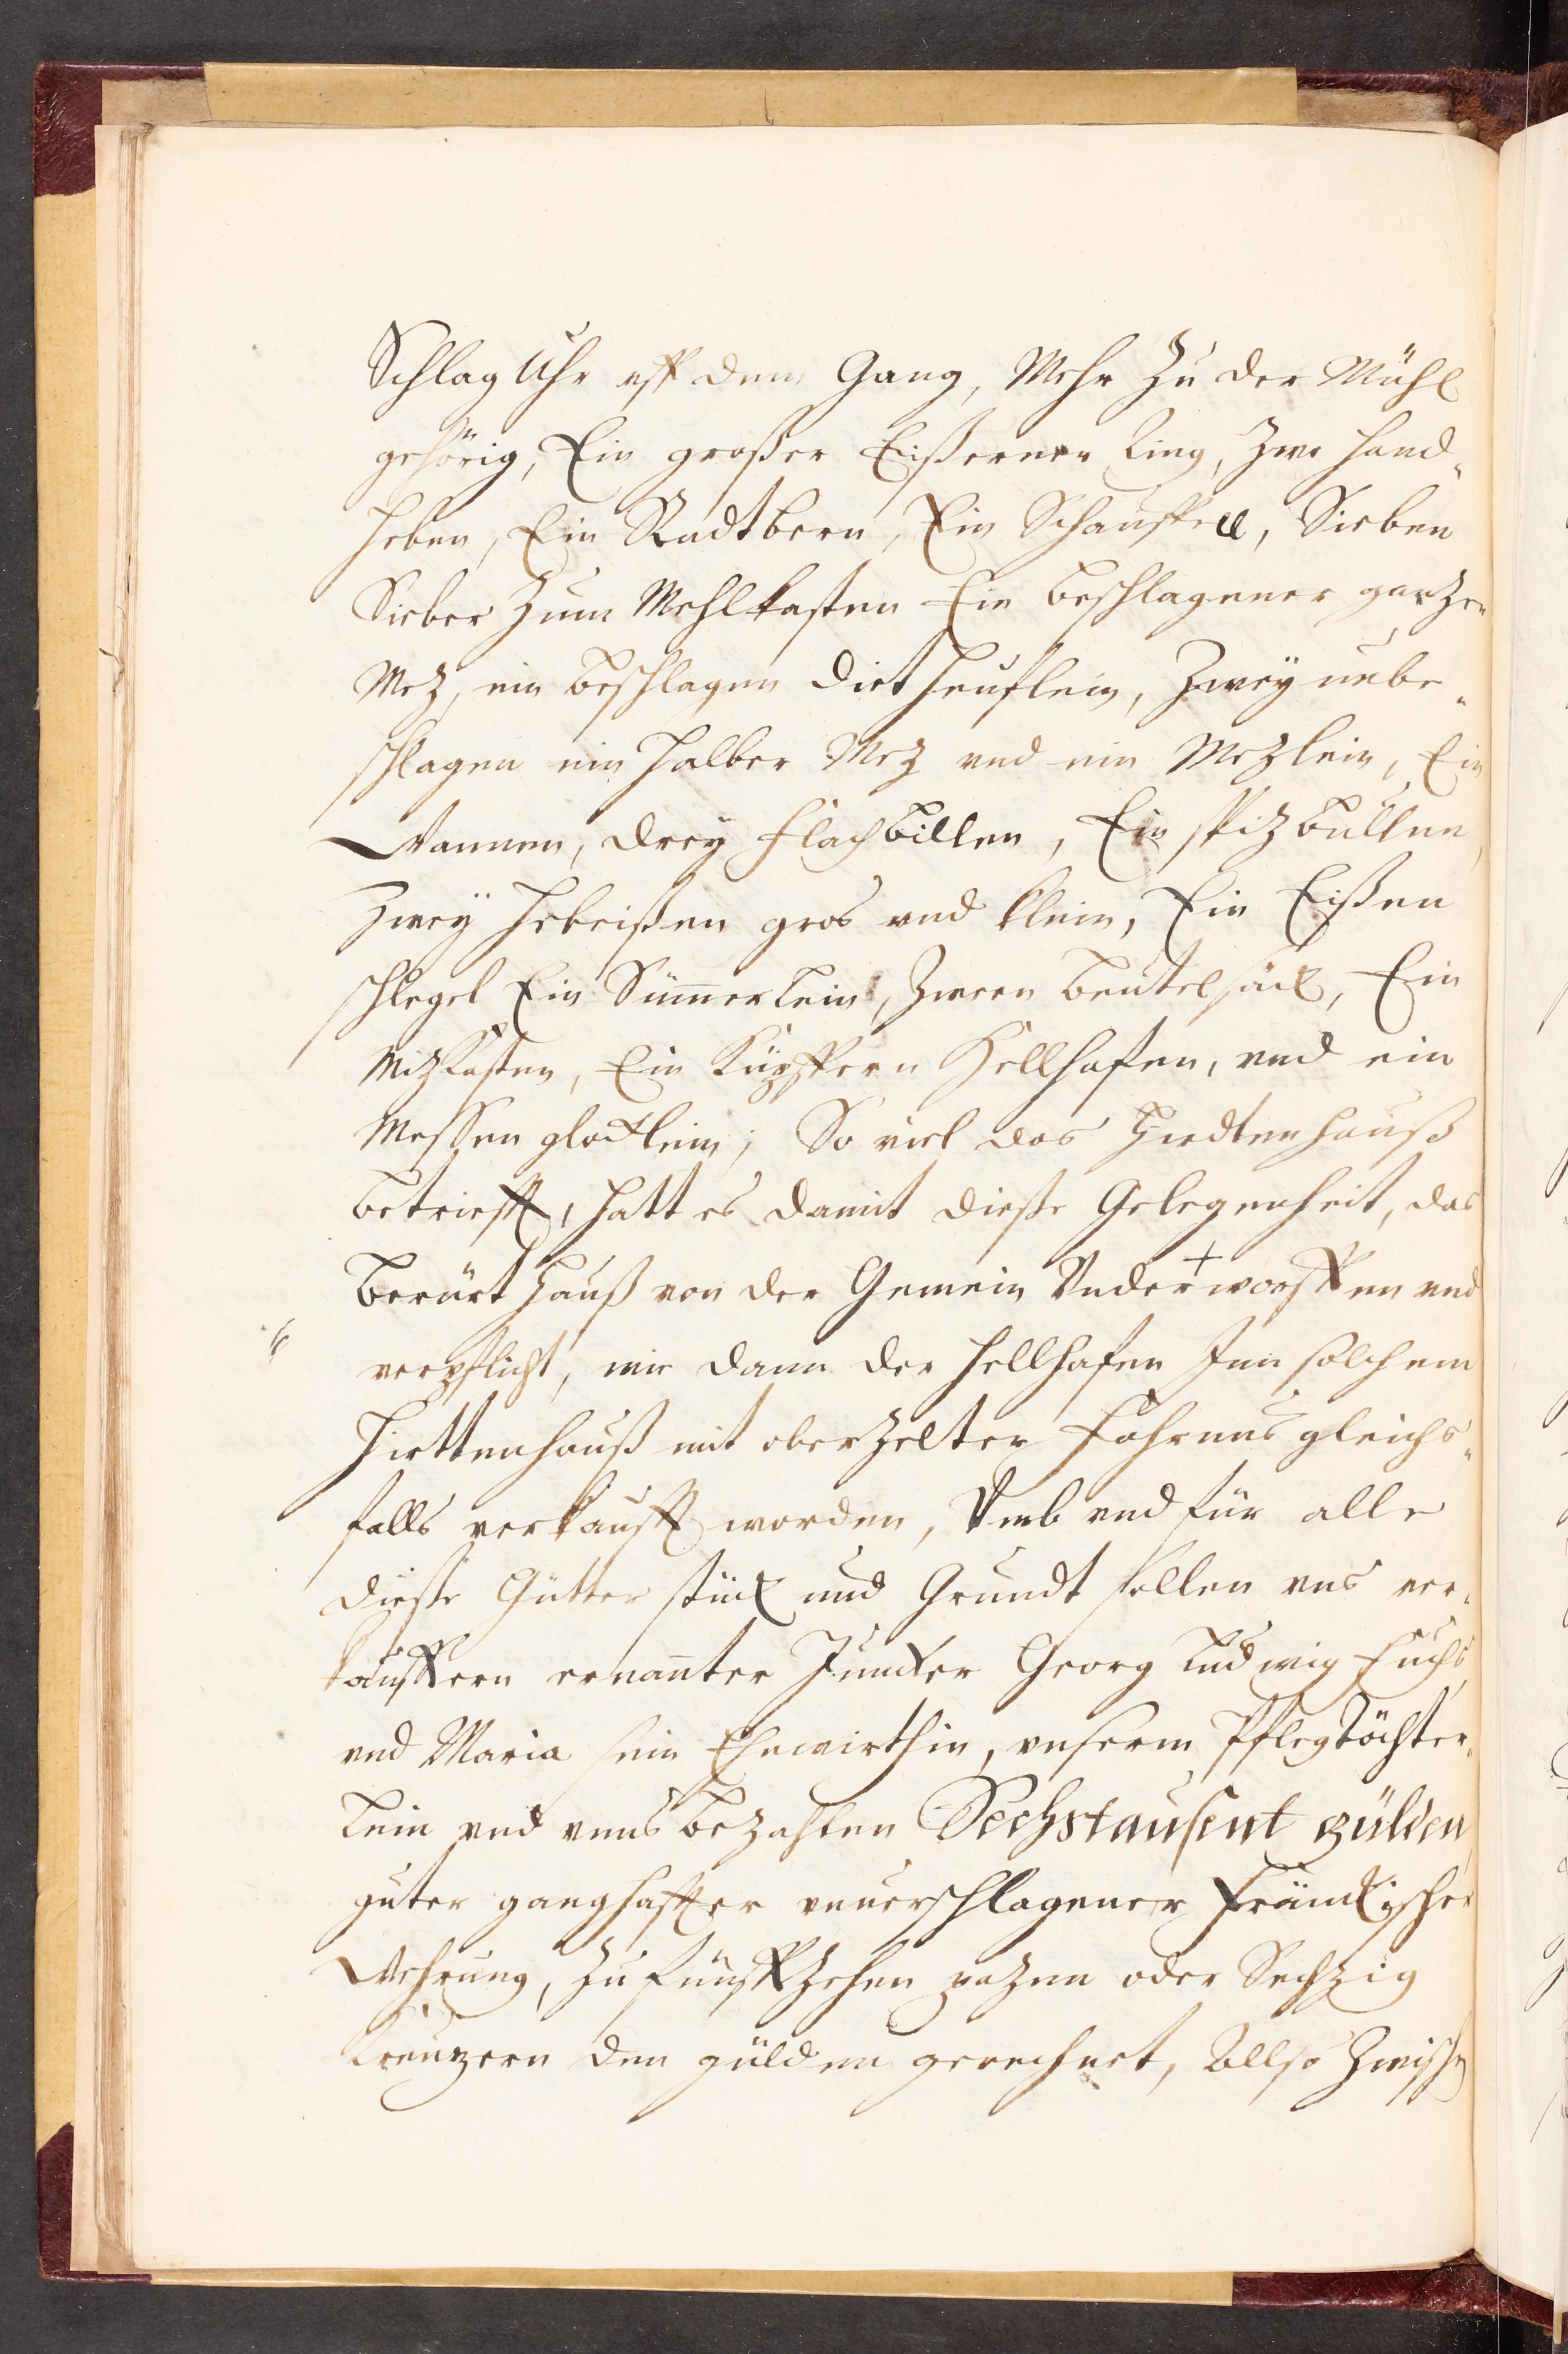 Schlag Uhr uff dem Gang, Mehr Zu der Mühl
gehörig, Ein großer Eißerner Ring, Zwo hand„
heben, Ein Radtbern, Ein Schauffell, Sieben
Sieber Zum Mehlkasten Ein beschlagener ganzer
Mez, ein beschlagen Dietheuflein, Zwey unbe„
schlagen ein halber Mez und ein Mezlein, Ein
Wannen, drey flachbillen, Ein spizbüllen,
Zwey hebeißen gros und klein, Ein Eißen
schlegel Ein Sümmerlein, Zween beutelsäck, Ein
Mizkasten, Ein Küpffern Hellhafen, und ein
Messen glöcklein; So viel das Hiedtenhauß
betriefft, hatt es damit dieße Gelegenheit, das
berürt hauß von der Gemein Underworffen und
verpflicht, wie dann der hellhafen Inn solchem
Hirttenhauß mit oberzelter fahrnus gleichs„
falls verkaufft worden, Umb und für alle
dieße Gütter stück und Grundt sollen uns ver„
käuffern ernanter Juncker Georg Ludwig Fuchs
und Maria sein Ehewirthin, unserm Pflegtöchter„
lein und unns bezahlen Sechstausent gülden
guter ganghaffter unuerschlagener Fränckischer
Wehrung, Zu fünffzehen pazen oder Sechzig
Creuzern den gülden gerechnet, Allso Zwischen